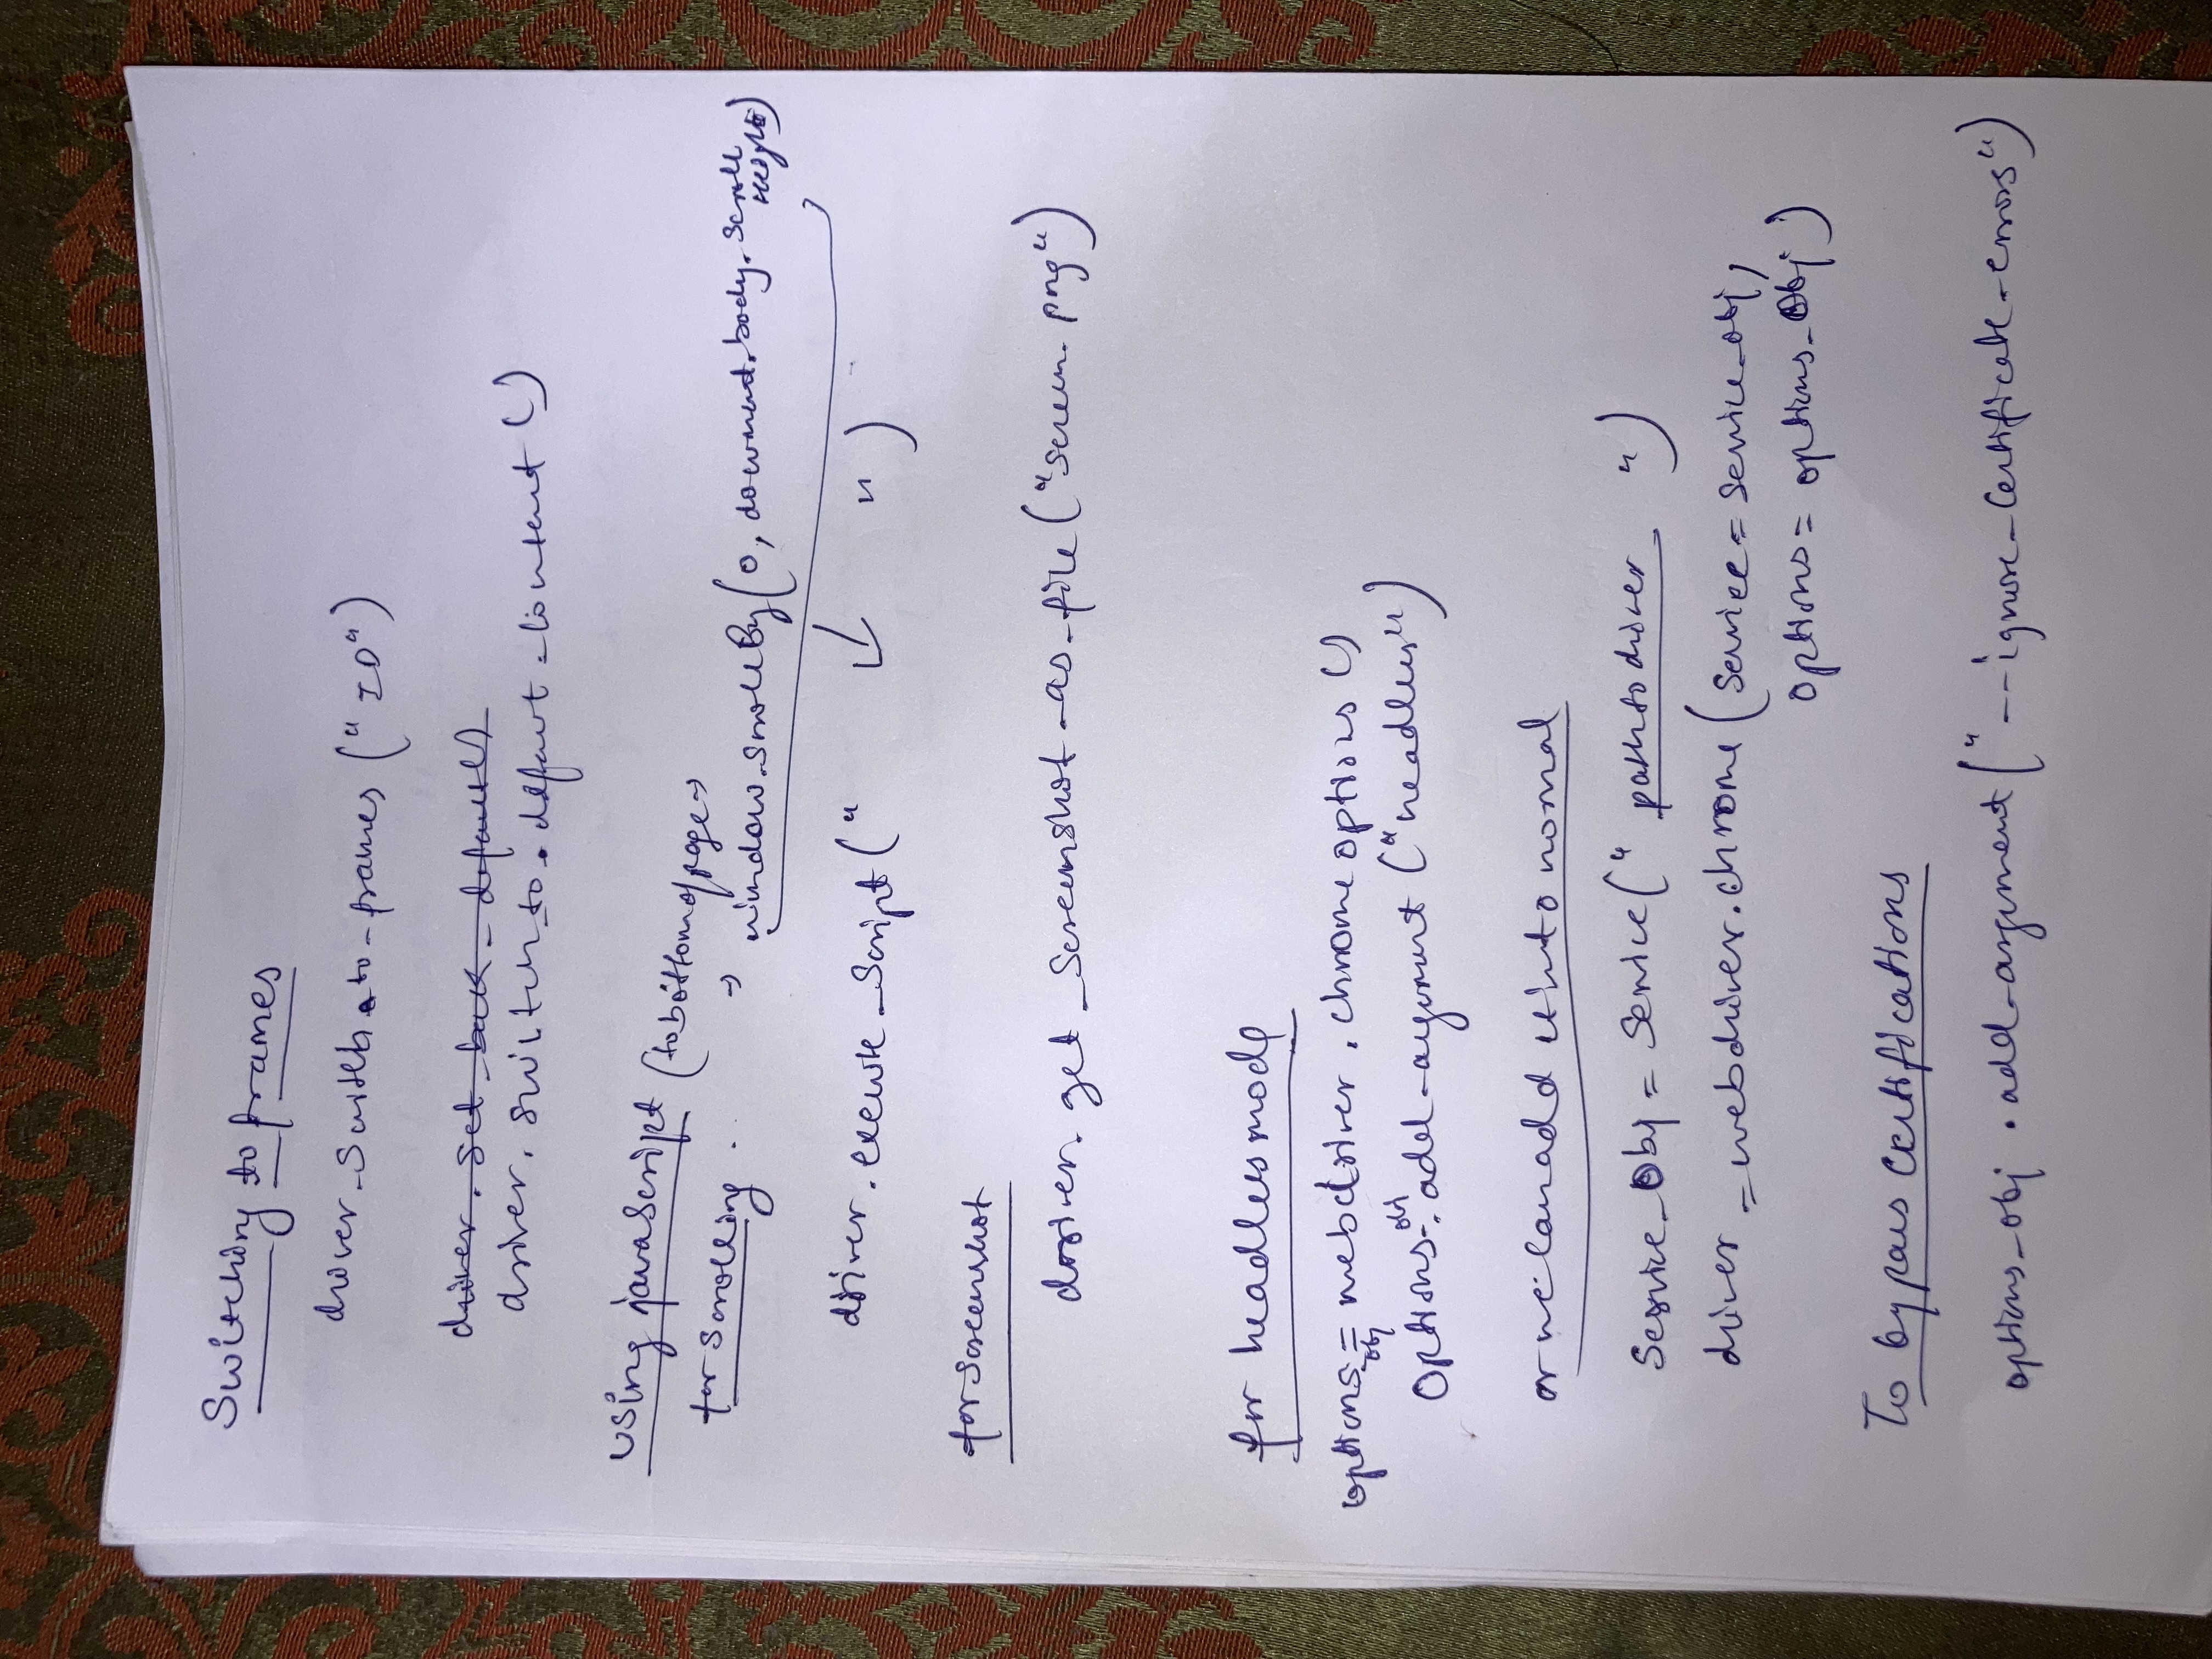 Switching to frames
driver_Switch_to-frames ("ID")
driver.set_back_default()
driver.switch_to.defaut_content()
Using javaScript (to bottom of page →
for scrolling. → window.scrollBy(0, document.body.scroll
Height)
driver.execute_Script(" ↓ ")
for screenshot
driver.get_Screenshot_as_file("screen.png")
for headless mode
options_obj = webdriver.chromeoptions()
Options_obj.add_argument("headless")
or we can add it into normal
Service_Obj = Service(" path to driver ")
driver = webdriver.chrome(Service = service_obj,
options = options_Obj)
To bypass Certifications
options_obj.add_argument("--ignore-Certificate-errors")